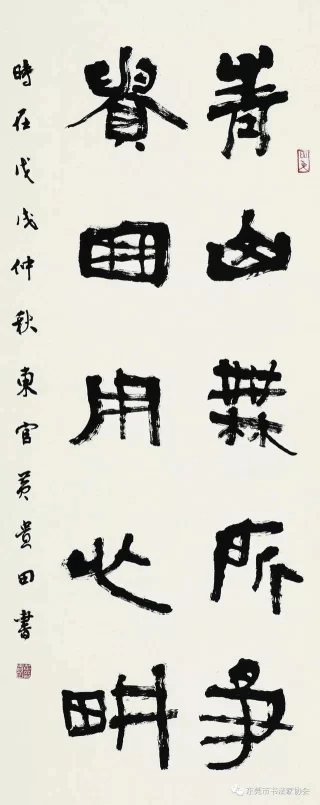 青山無所爭
用心畊
時在戊戌仲秋東官黃貴田書
东莞市书法家协会